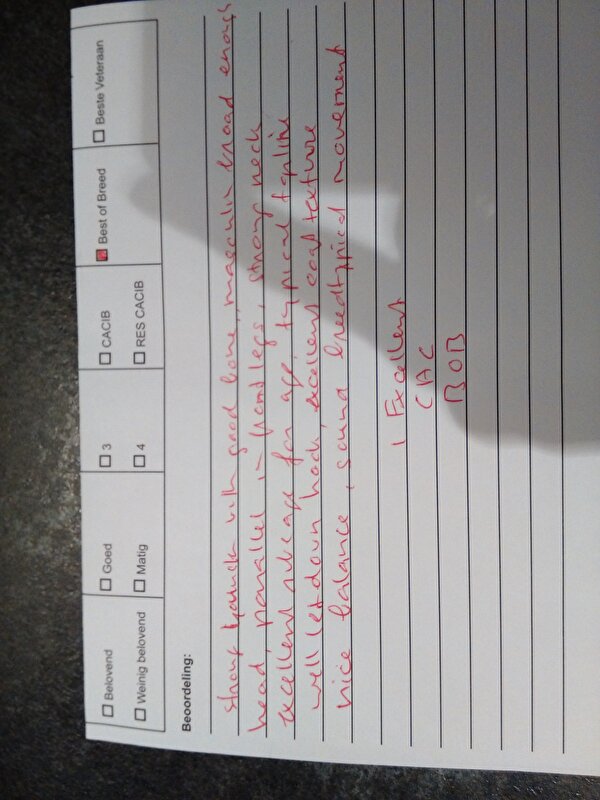 Belovend
Goed
3
CACIB
Best of Breed
Beste Veteraan
Weinig belovend
Matig
4
RES CACIB
Beoordeling:
strong with good bone, masculin broad enough
head, parallel in front legs, strong neck
excellent ribcage for age, typical topline
well let down hock, excellent coat texture
nice balance, sound breedtypical movement
1 Excellent
CAC
BOB